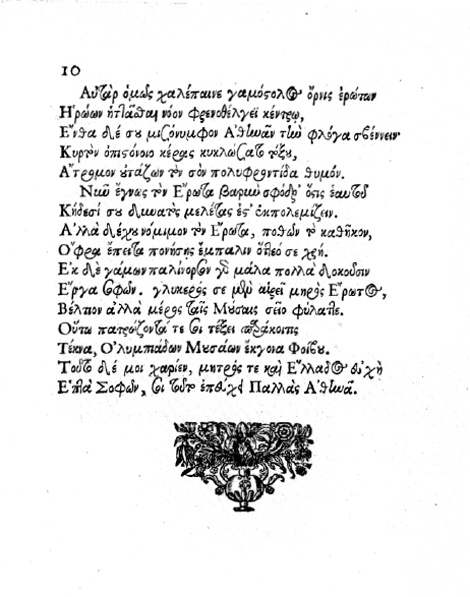 10
Αὐτὰρ ὁμῶς χαλέπαινε γαμοςόλος ὄρνις ἐρώτων
Ἡρώων νόον φρενοθέλγεϊ κέντρῳ,
Ἔνθα δέ σου μιξόνυμφον Ἀθηνᾶν τὴν φλόγα σβέννειν
Κυρτὸν ὀπιςόνοιο κέρας κυκλώσατο τόξου,
Ἄτρομον τὸν σὸν πολυφροντίδα θυμόν.
Νῦν ἔγνως τὸν Ἔρωτα βαρὺν σφόδρ' ὅςις ἑαυτοῦ
Κήδεσί σου δυνατὸς μελέτας ἐς' ἐκπολεμίζειν.
Ἀλλὰ δέχου νόμιμον τὸν Ἔρωτα, ποθῶν τὸ καθῆκον,
Ὄφρα ἔπειτα πονήσῃς ἔμπαλιν ὅθεό σε χρή.
Ἐκ δὲ γάμων παλίνορσον γὸ μάλα πολλὰ δοκοῦσιν
Ἔργα σοφῶν. γλυκερός σε μὲν αἱρεῖ μηρὸς Ἔρωτος,
Βέλτιον ἀλλὰ μέρος ταῖς Μούσαις σεῖο φύλαττε.
Οὕτω πατρώζοντά τε σοι τέξει παράκοιτις
Τέκνα, Ὀλυμπιάδων Μουσάων ἔκγονα Φοίβου.
Τοῦτο δέ μοι χαρίεν, μητρός τε καὶ Ἑλλάδος εὐχὴ
Ἑπτὰ Σοφῶν, σοι τοῦτ' Παλλὰς Ἀθηνᾶ.